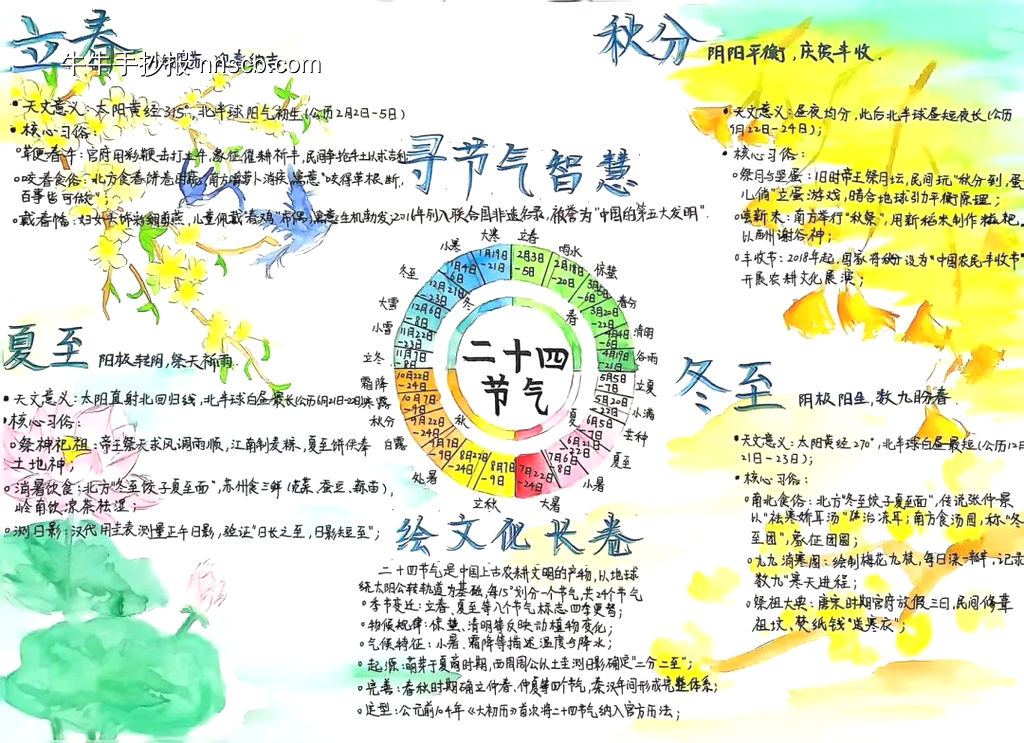 立春
牛牛手抄报 nnscb.com
• 天文意义：太阳黄经315°，北半球阳气初生（公历2月2日-5日）
• 核心习俗：
○鞭春牛：官府用彩鞭击打土牛，象征催耕祈丰，民间争抢牛土以求吉利
○咬春食俗：北方食春饼卷时蔬，南方嚼萝卜消疾，寓意"咬得草根断，
百事皆可做"；
○戴春幡：妇女头饰彩绸剪燕，儿童佩戴"春鸡"布偶，寓意生机勃发；2016年列入联合国非遗名录，被誉为"中国的第五大发明"．
寻节气智慧
秋分 阴阳平衡，庆贺丰收．
• 天文意义：昼夜均分，此后北半球昼短夜长（公历
9月22日-24日）；
• 核心习俗：
○祭月与竖蛋：旧时帝王祭月坛，民间玩"秋分到，蛋
儿俏"立蛋游戏，暗合地球引力平衡原理；
○尝新米：南方举行"秋祭"，用新稻米制作糍粑，
以酬谢谷神；
○丰收节：2018年起，国家将秋分设为"中国农民丰收节"
开展农耕文化展演；
夏至 阳极转阴，祭天祈雨．
• 天文意义：太阳直射北回归线，北半球白昼最长（公历6月21日-22日）
• 核心习俗：
○祭神祀祖：帝王祭天求风调雨顺，江南制麦粽、夏至饼供奉
土地神；
○消暑饮食：北方"冬至饺子夏至面"，苏州食三鲜
岭南饮凉茶祛湿；
○测日影：汉代用圭表测量正午日影，验证"日长之至，日影短至"；
二十四
节气
春
夏
秋
冬
立春
2月3日
-5日
雨水
2月18日
-20日
惊蛰
3月5日
-6日
春分
3月20日
-22日
清明
4月4日
-6日
谷雨
4月19日
-21日
立夏
5月5日
-7日
小满
5月20日
-22日
芒种
6月5日
-7日
夏至
6月21日
-22日
小暑
7月6日
-8日
大暑
7月22日
-24日
立秋
8月7日
-9日
处暑
8月22日
-24日
白露
9月7日
-9日
秋分
9月22日
-24日
寒露
10月7日
-9日
霜降
10月22日
-24日
立冬
11月7日
-8日
小雪
11月22日
-23日
大雪
12月6日
-8日
冬至
12月21日
-23日
小寒
1月4日
-6日
大寒
1月19日
-21日
冬至 阴极阳生，数九盼春．
• 天文意义：太阳黄经270°，北半球白昼最短（公历12月
21日-23日）；
• 核心习俗：
○南北食俗：北方"冬至饺子夏至面"，传说张仲景
以"祛寒娇耳汤"医治冻耳；南方食汤圆，称"冬
至团"，象征团圆；
○九九消寒图：绘制梅花九枝，每日染一瓣，记录
"数九"寒天进程；
○祭祖大典：唐宋时期官府放假三日，民间修葺
祖坟、焚纸钱"送寒衣"；
绘文化长卷
二十四节气是中国上古农耕文明的产物，以地球
绕太阳公转轨道为基础，每15°划分一个节气，共24个节气
• 季节变迁：立春、夏至等八个节气标志四季更替；
○物候规律：惊蛰、清明等反映动植物变化；
○气候特征：小暑、霜降等描述温度与降水；
○起源：萌芽于夏商时期，西周周公以土圭测日影确定"二分二至"；
○完善：春秋时期确立仲春、仲夏等四个节气，秦汉年间形成完整体系；
○定型：公元前104年《太初历》首次将二十四节气纳入官方历法；